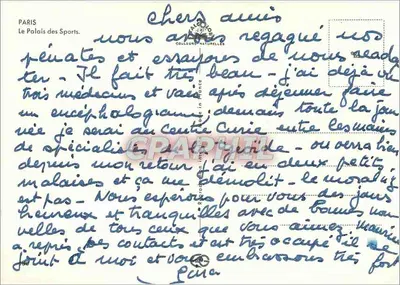 PARIS
Le Palais des Sports.
chers amis
nous avons regagné nos
pénates et essayons de nous readap
ter - Il fait très beau - j'ai déjà vu
trois médecins et vais après déjeuner faire
un encéphalogramme; demain toute la jour
née je serai au centre Curie entre les mains
de spécialistes de la thyroïde - on verra bien
depuis mon retour j'ai eu deux petits
malaises et ça me démolit - le moral n'y
est pas - Nous espérons pour vous des jours
heureux et tranquilles avec de bonnes nou
velles de tous ceux que vous aimez Maurice
a repris ses contacts et est très occupé il se
joint à moi et vous embrassons très fort
COULEURS NATURELLES